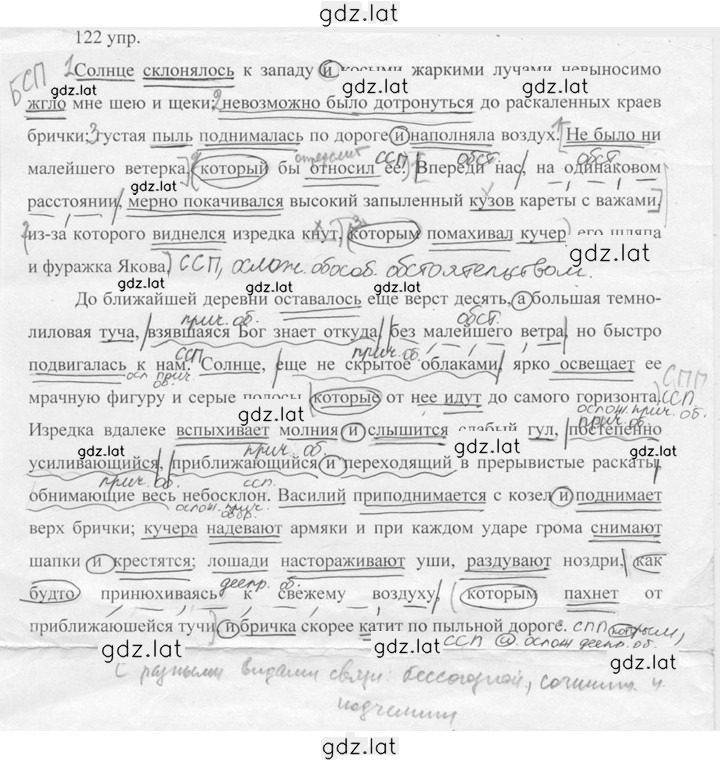 gdz.lat
122 упр.
БСП 1 Солнце склонялось к западу и косыми жаркими лучами невыносимо
gdz.lat gdz.lat gdz.lat
жгло мне шею и щеки; 2 невозможно было дотронуться до раскаленных краев
брички; 3 густая пыль поднималась по дороге и наполняла воздух. Не было ни
относит ССП обст. обст.
малейшего ветерка, который бы относил ее. Впереди нас, на одинаковом
gdz.lat
расстоянии, мерно покачивался высокий запыленный кузов кареты с важами,
из-за которого виднелся изредка кнут, которым помахивал кучер, его шляпа
gdz.lat gdz.lat
и фуражка Якова. ССП, ослож. обособ. обстоятельством.
До ближайшей деревни оставалось еще верст десять, а большая темно-
прич. об. обст.
лиловая туча, взявшаяся Бог знает откуда, без малейшего ветра, но быстро
ССП прич. об.
подвигалась к нам. Солнце, еще не скрытое облаками, ярко освещает ее
осл. прич. об. СПП
мрачную фигуру и серые полосы, которые от нее идут до самого горизонта. ССП
gdz.lat ослож. прич. об.
Изредка вдалеке вспыхивает молния и слышится слабый гул, постепенно
gdz.lat прич. об. gdz.lat прич. об. gdz.lat
усиливающийся, приближающийся и переходящий в прерывистые раскаты,
прич. об. ссп.
обнимающие весь небосклон. Василий приподнимается с козел и поднимает
ослож. прич. обор.
верх брички; кучера надевают армяки и при каждом ударе грома снимают
шапки и крестятся; лошади настораживают уши, раздувают ноздри, как
gdz.lat деепр. об. gdz.lat
будто принюхиваясь к свежему воздуху, которым пахнет от
приближающейся тучи, и бричка скорее катит по пыльной дороге. СПП
gdz.lat ССП ослож. деепр. об. gdz.lat
С разными видами связи: бессоюзной, сочинит. и
подчинит
gdz.lat